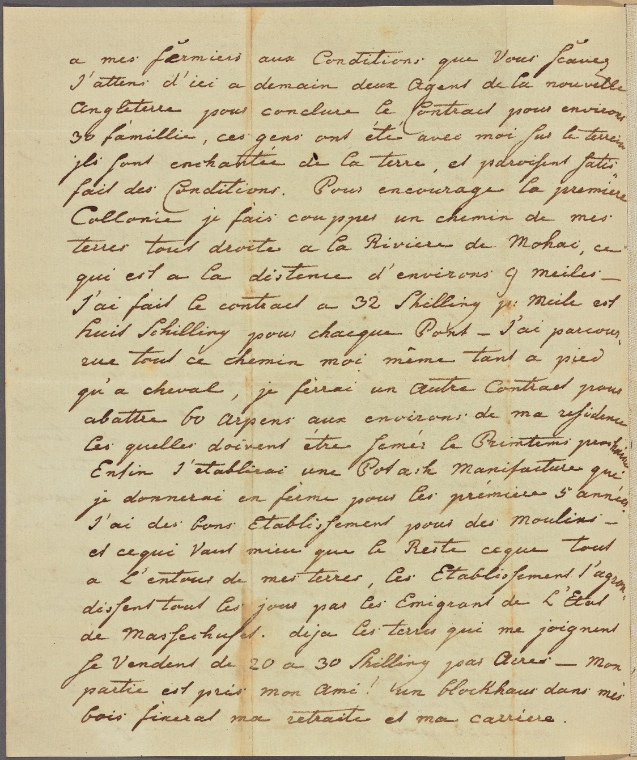 a mes fermiers aux Conditions que Vous sçavez
J'attens d'ici a demain deux Agent de la nouvelle
Angleterre pour conclure le Contract pour environ
30 famillie, ces gens ont été avec moi sur le terrein
ils sont enchantée de la terre, et paroissent satis
fait des Conditions. Pour encourage la premiere
Collonie je fais coupper un chemin de mes
terres tout droite a la Riviere de Mohac, ce
qui est a la distence d'environs 9 meiles —
J'ai fait le contract a 32 Shilling p: Meile est
huit Schilling pour chacque Pont — J'ai parcou
rue tout ce chemin moi même tant a pied
qu'a cheval, je ferrai un autre Contract pour
abattre 60 Arpens aux environs de ma residence
les quelles doivent étre semés le Printems prochain
Enfin J'etablirai une Potash Manifacture qui
je donnerai en ferme pour les prémiere 5 années
J'ai des bons Etablissement pour des Moulins —
et cequi Vaut mieu que le Reste ceque tout
a L'entour de mes terres, les Etablissement s'agran
dissent tout les jours par les Emigrant de L'Etat
de Massechuset. dija les terres qui me joignent
se Vendent de 20 a 30 Shilling par Acres — Mon
partie est pris mon Ami! un blockhaus dans mes
bois finerat ma retraite et ma carriere.